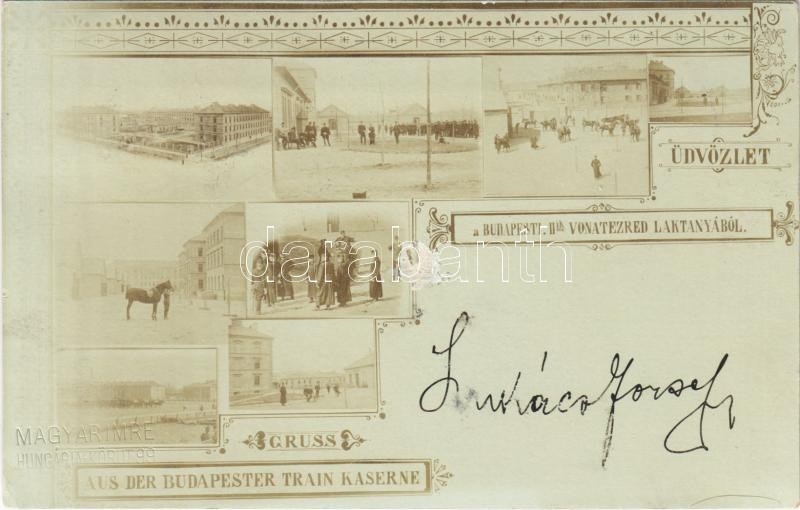 ÜDVÖZLET
a BUDAPESTI IIik VONATEZRED LAKTANYÁBÓL.
darabanth
Lukács József
GRUSS
AUS DER BUDAPESTER TRAIN KASERNE
MAGYAR IMRE
HUNGÁRIA-KÖRUT 99